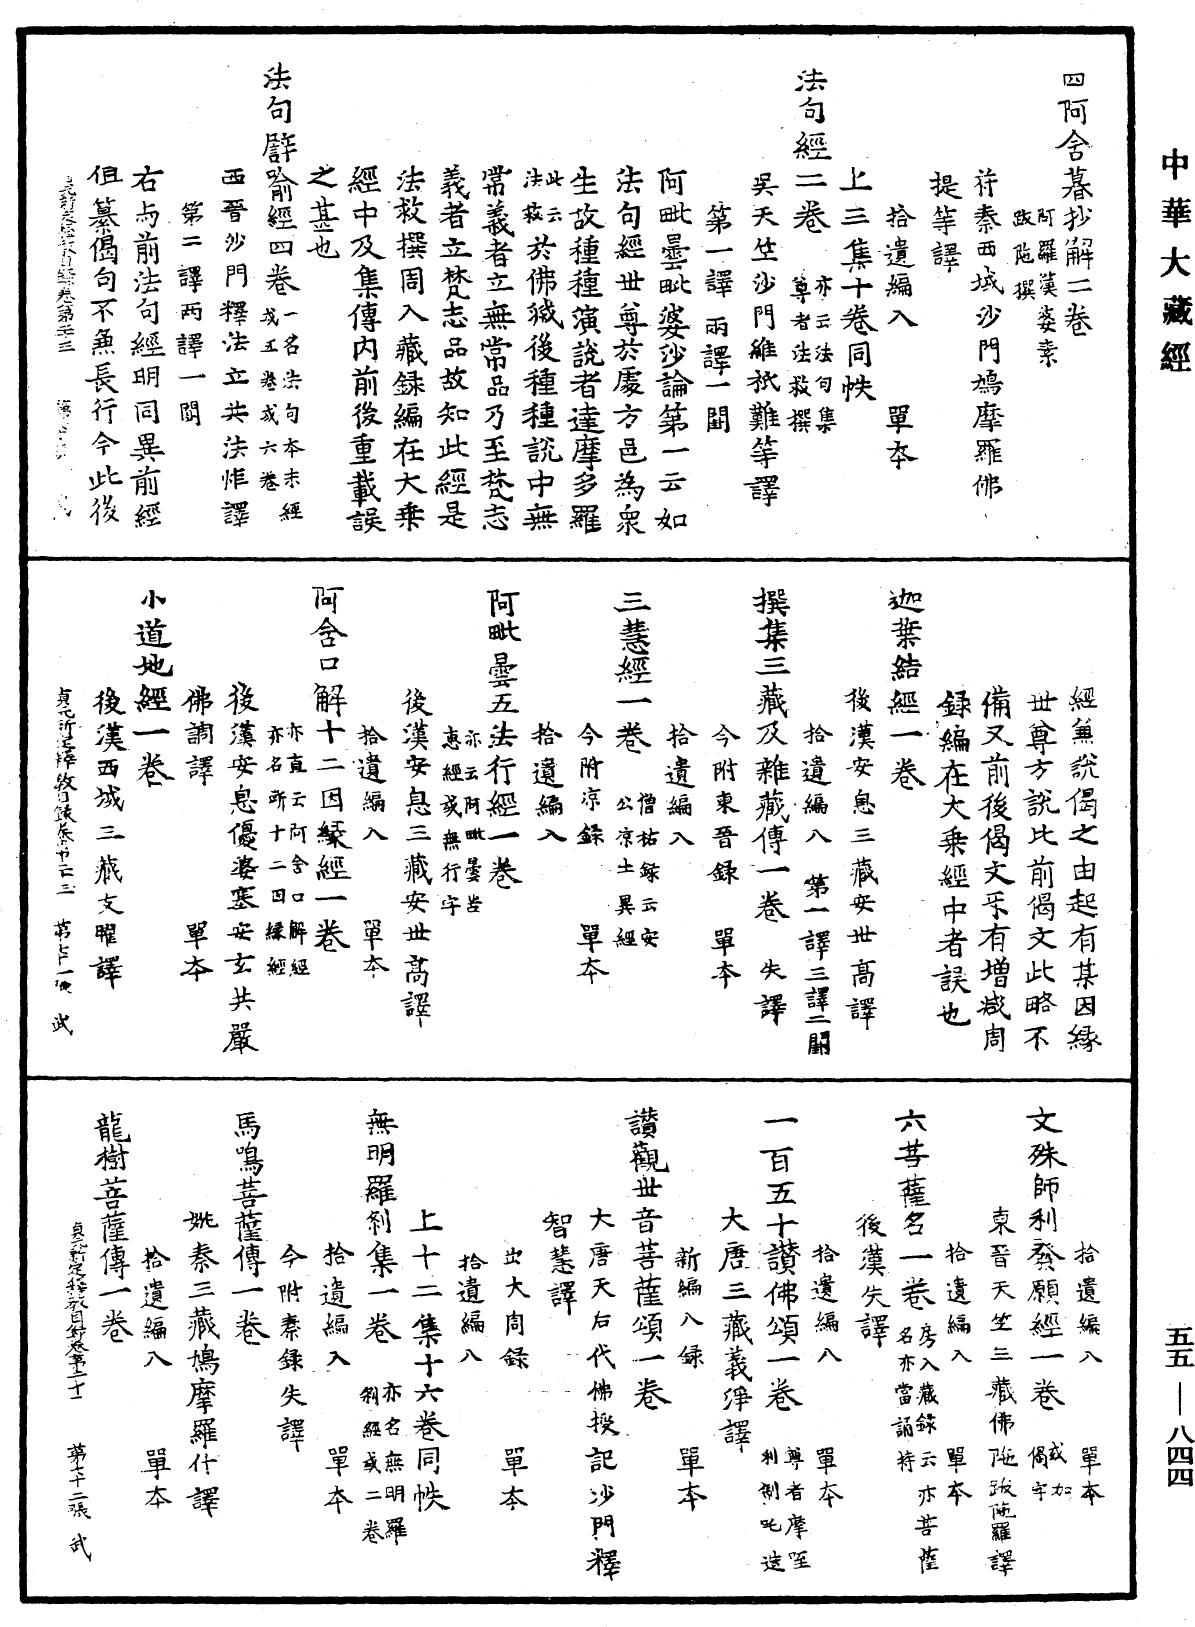 中華大藏經
四阿含暮抄解二卷阿羅漢婆素跋陁撰
苻秦西域沙門鳩摩羅佛
提等譯
拾遺編入　單本
上三集十卷同帙
法句經二卷亦云法句集尊者法救撰
吳天竺沙門維祇難等譯
第一譯兩譯一闕
阿毗曇毗婆沙論第一云如
法句經世尊於處處方邑為衆
生故種種演說者達摩多羅
此云法救於佛滅後種種說中無
常義者立無常品乃至梵志
義者立梵志品故知此經是
法救撰周入藏録編在大乗
經中及集傳內前後重載誤
之甚也
法句譬喻經四卷一名法句本末經或五卷或六卷
西晉沙門釋法立共法炬譯
第二譯兩譯一闕
右与前法句經明同異前經
但纂偈句不兼長行今此後
經兼說偈之由起有某因緣
世尊方說比前偈文此略不
備又前後偈文乐有增減周
録編在大乗經中者誤也
迦葉結經一卷
後漢安息三藏安世高譯
拾遺編入　第一譯三譯二闕
撰集三藏及雜藏傳一卷　失譯
今附東晉録　單本
拾遺編入
三慧經一卷僧祐録云安公凉土異經
今附凉録　單本
拾遺編入
阿毗曇五法行經一卷亦云阿毗曇苦惠經或無行字
後漢安息三藏安世高譯
拾遺編入　單本
阿含口解十二因緣經一卷亦直云阿含口解經亦名断十二因緣經
後漢安息優婆塞安玄共嚴
佛調譯　單本
小道地經一卷
後漢西域三藏支曜譯
貞元新定釋教目録卷第廿三　第七十一張　武
拾遺編入　單本
文殊師利發願經一卷或加偈字
東晉天竺三藏佛陁跋陁羅譯
拾遺編入　單本
六菩薩名一卷房入藏録云亦菩薩名亦當誦持
後漢失譯
拾遺編入　單本
一百五十讃佛頌一卷尊者摩咥利制吒造
大唐三藏義淨譯
新編入録　單本
讃觀世音菩薩頌一卷
大唐天后代佛授記沙門釋
智慧譯
出大周録　單本
拾遺編入
上十二集十六卷同帙
無明羅刹集一卷亦名無明羅刹經或二卷
拾遺編入　單本
今附秦録失譯
馬鳴菩薩傳一卷
姚秦三藏鳩摩羅什譯
拾遺編入　單本
龍樹菩薩傳一卷
貞元新定釋教目録卷第二十三　第七十二張　武
五五—八四四